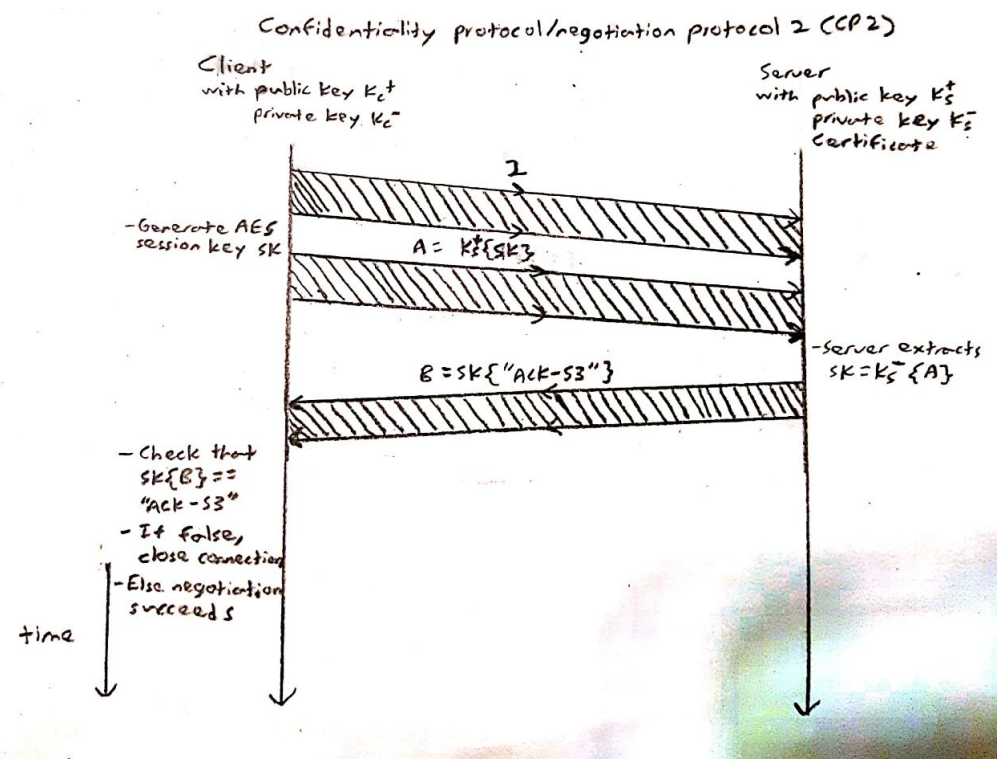 Confidentiality protocol/negotiation protocol 2 (CP2)
Client
with public key Kc+
private key Kc-
Server
with public key Ks+
private key Ks-
Certificate
2
-Generate AES
session key SK
A = Ks+{SK}
-Server extracts
SK=Ks-{A}
B=SK{"ACK-S3"}
- Check that
SK{B}==
"ACK-S3"
- If false,
close connection
-Else negotiation
succeeds
time